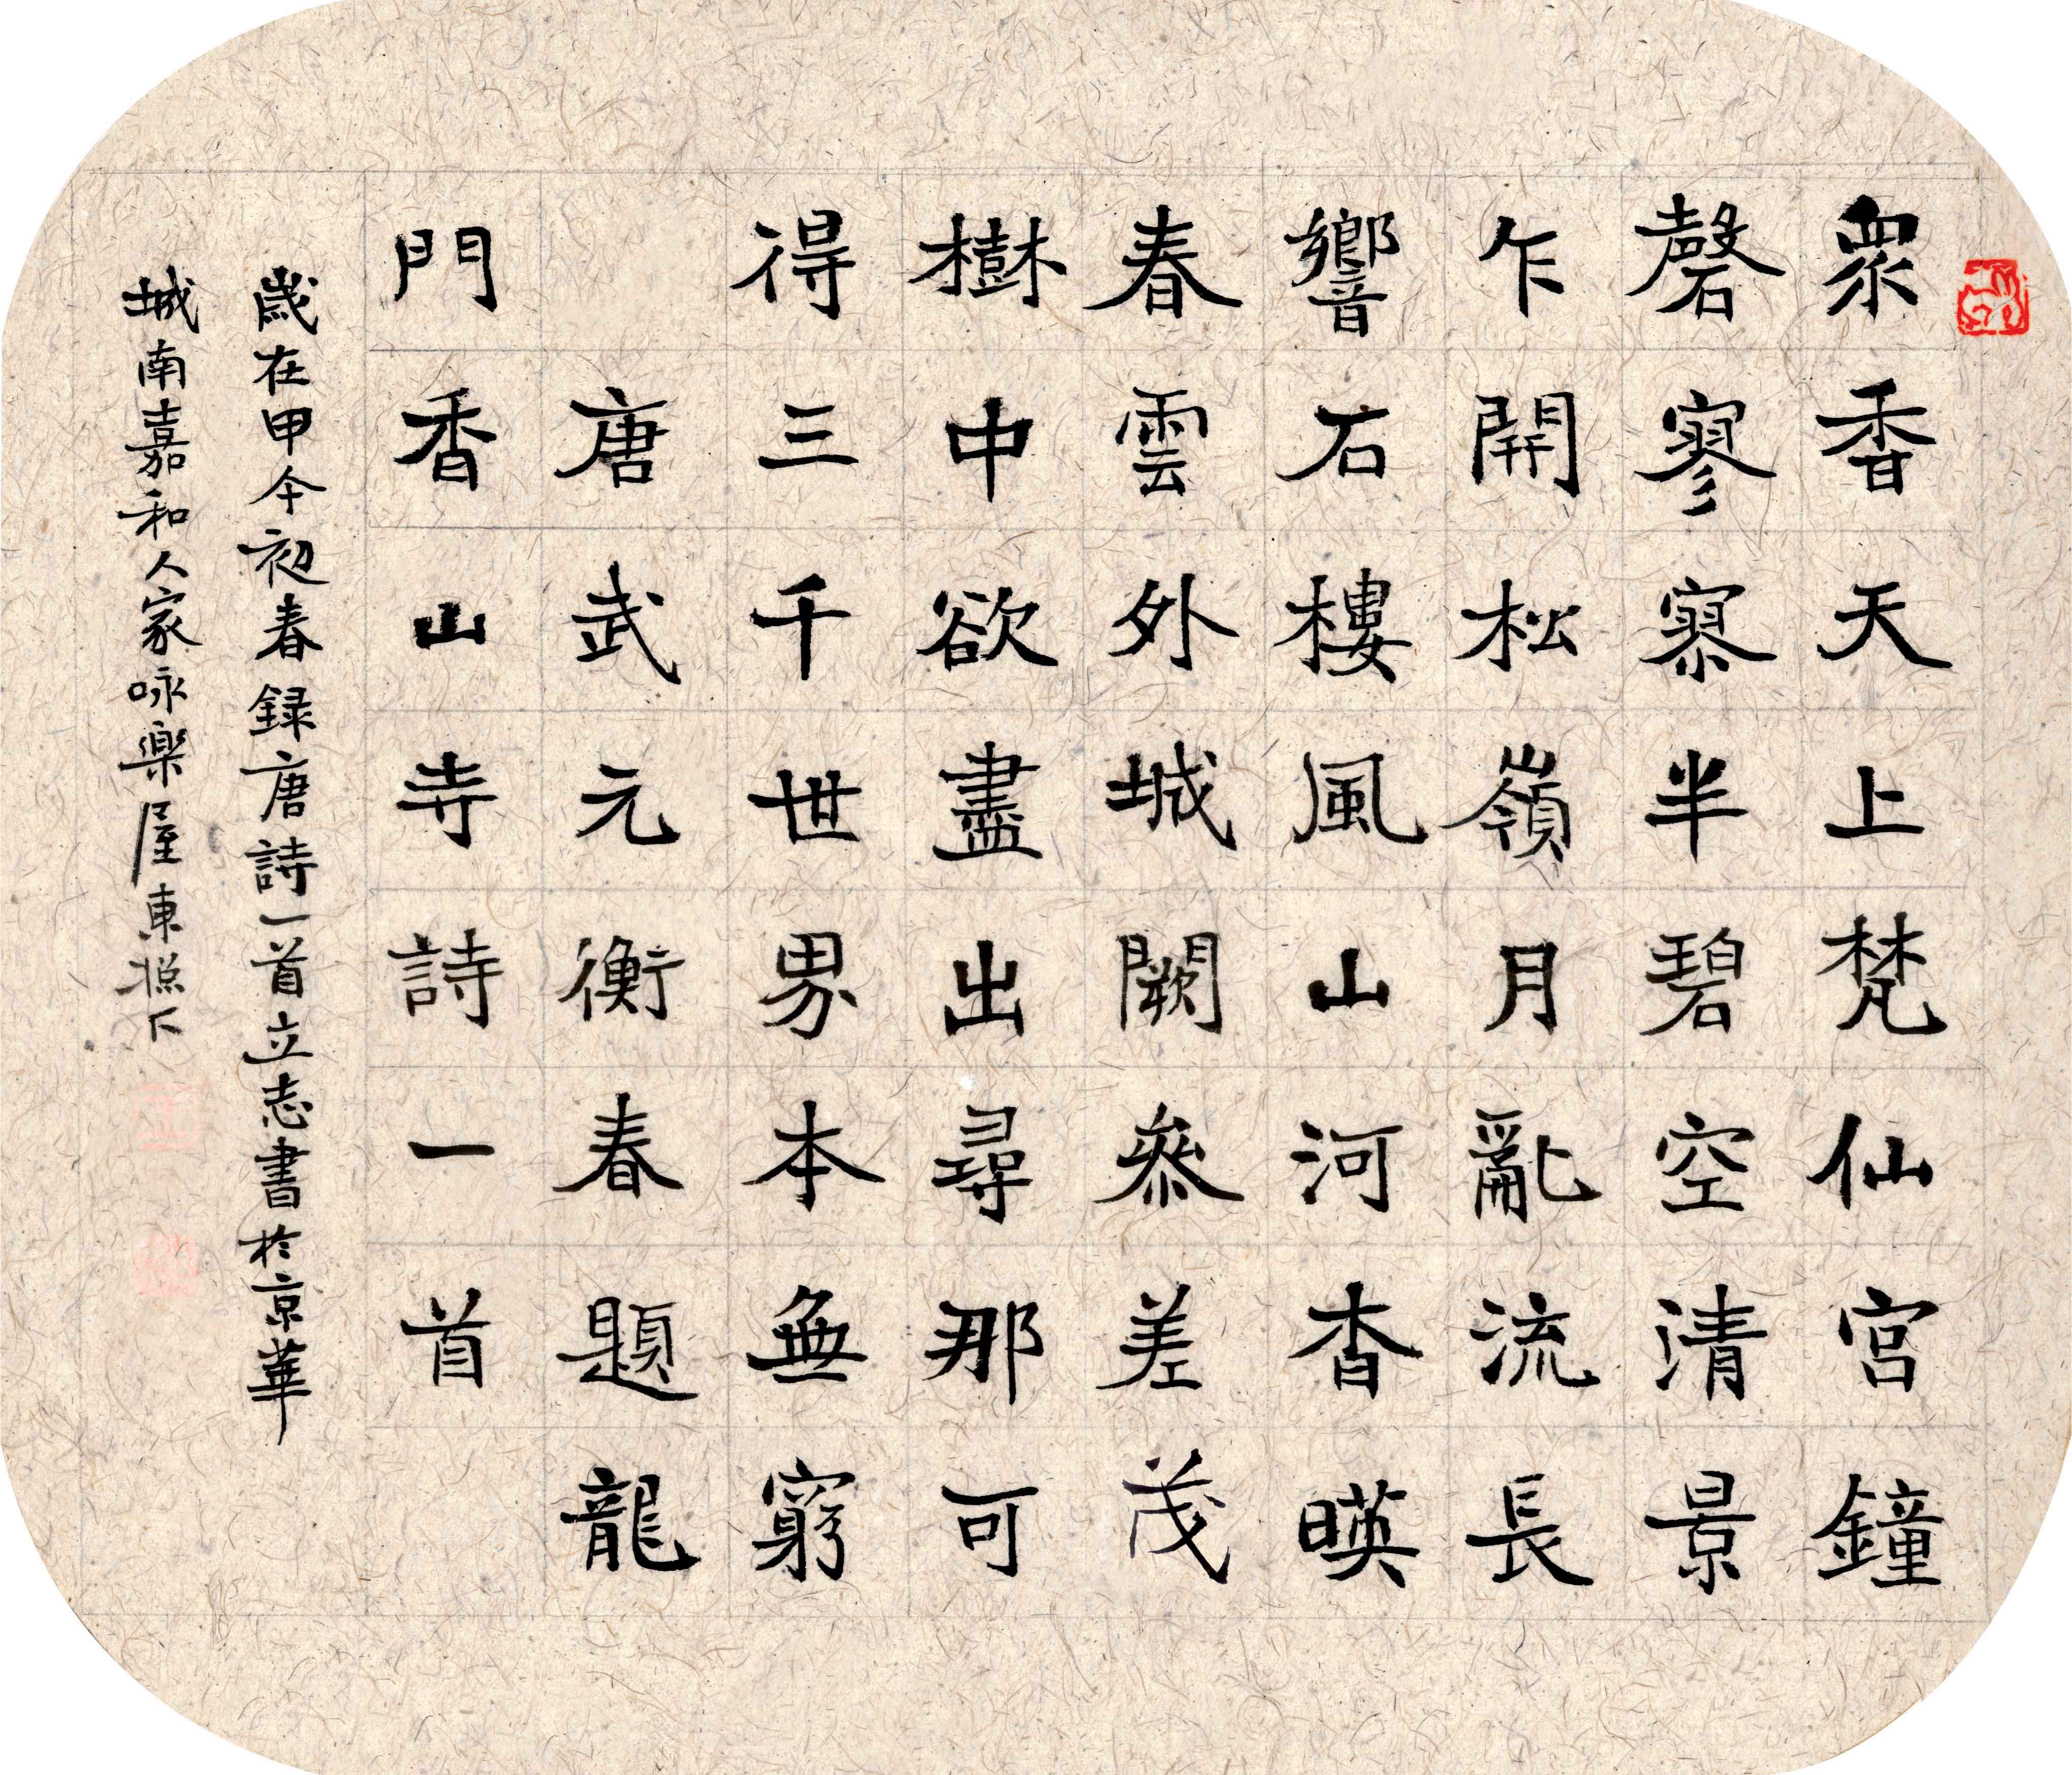 眾香天上梵仙宮鐘
磬寥寥半碧空清景
乍開松嶺月亂流長
響石樓風山河杳暎
春雲外城闕參差茂
樹中欲盡出尋那可
得三千世界本無窮
唐武元衡春題龍
門香山寺詩一首
歲在甲午初春録唐詩一首立志書於京華
城南嘉和人家咏樂屋東牕下